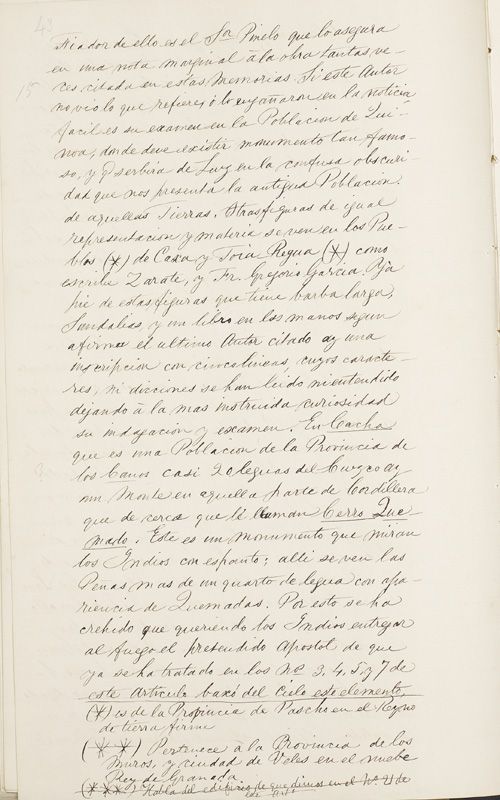 43
15
Fiador de ello es el Sor Pinelo que lo asegura
en una nota marginal á la obra tantas ve-
ces citada en estas Memorias. Si este Autor
no vio lo que refiere, ó lo engañaron en la noticia
facil es su examen en la Poblacion de Qui-
noa, donde deve existir monumento tan famo-
so, y q serbira de Luz en la confusa obscuri-
dad que nos presenta la antigua Poblacion
de aquellas Tierras. Otras figuras de igual
representacion y materia se ven en los Pue-
blos (*) de Caxa y Toia Regua (*) como
escribe Zarate, y Fr. Gregorio Garcia. Al
pie de estas figuras que tiene barba larga,
Sandalias y un libro en las manos segun
afirma el ultimo Autor citado ay una
inscripcion con cinco lineas, cuyos caracte-
res, ni dicciones se han leido ni entendido
dejando á la mas instruida curiosidad
su indagacion y examen. En Cacha
que es una Poblacion de la Provincia de
los Canas casi 20 leguas del Cuzco ay
un Monte en aquella parte de Cordillera
que de cerca que le llaman Cerro Que-
mado. Este es un monumento que miran
los Indios con espanto; alli se ven las
Penas mas de un quarto de legua con apa-
riencia de Quemadas. Por esto se ha
crehido que queriendo los Indios entregar
al fuego el pretendido Apostol de que
ya se ha tratado en los Nº 3, 4, 5, y 7 de
este Articulo baxó del Cielo este elemento,
(*) es de la Propincia de Pascho en el Reyno
de tierra firme
(**) Pertenece á la Provincia de los
Muros, y ciudad de Veles en el nuebo
Rey de Granada
(***) Habla del edificio de que dimos en el Nº 21 de